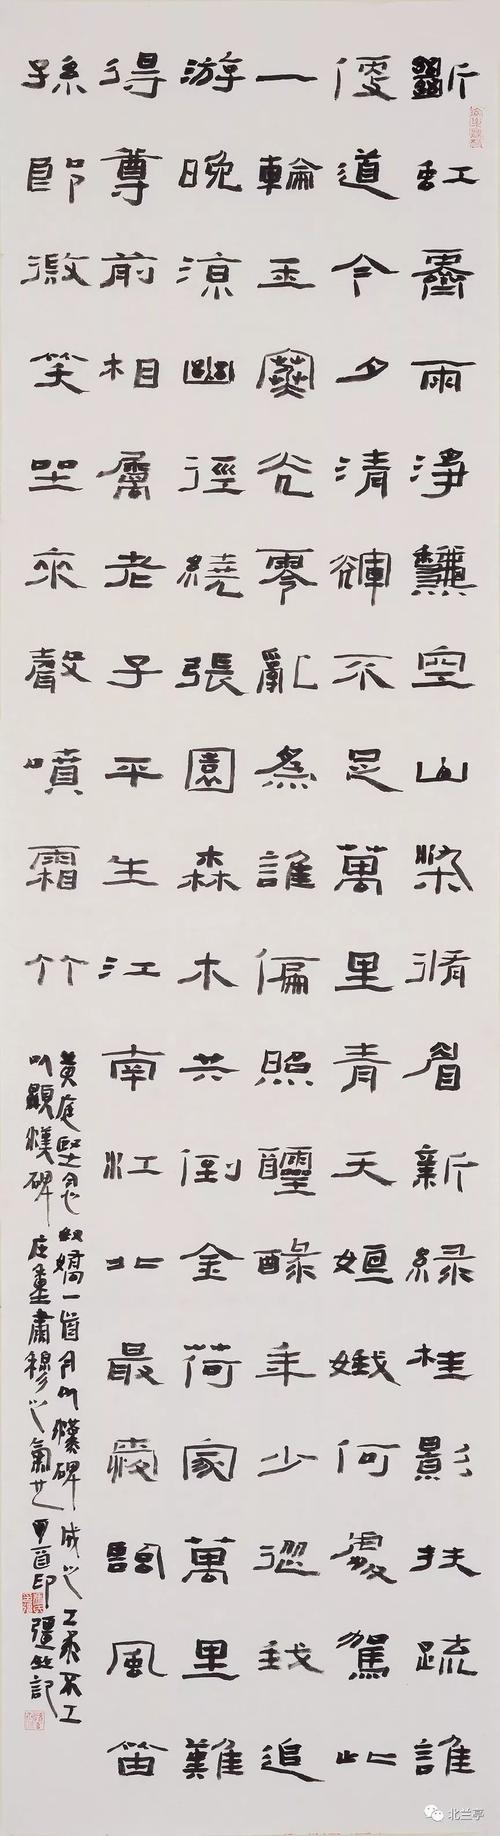 斷虹霽雨淨龝空山染脩眉新綠桂影扶疏誰
便道今夕清輝不足萬里青天姮娥何處駕此
一輪玉寒光零亂為誰偏照醽醁年少從我追
游晚涼幽徑繞張園森木共倒金荷家萬里難
得尊前相屬老子平生江南江北最愛臨風笛
孫郎微笑坐來聲噴霜竹
黃庭堅念奴嬌一首用以漢碑成之工求不工
以顯漢碑莊重肅穆之氣也 記
北兰亭